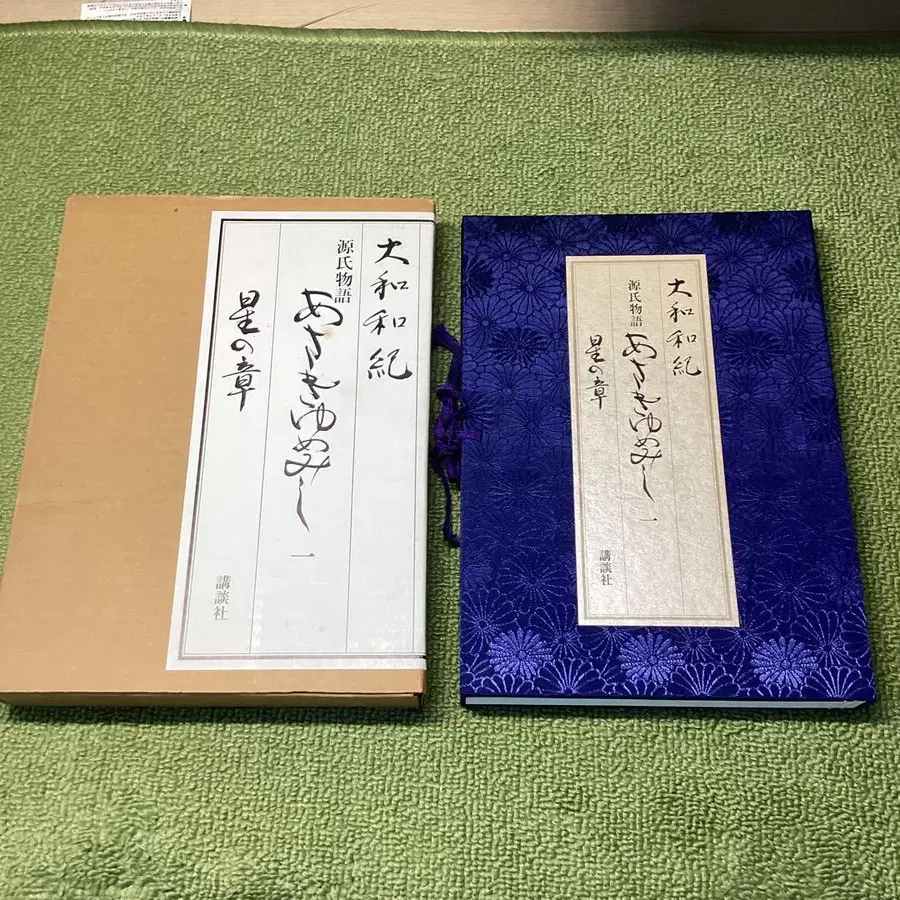 大和和紀
源氏物語
あさきゆめみし 一
星の章
講談社
大和和紀
源氏物語
あさきゆめみし 一
星の章
講談社